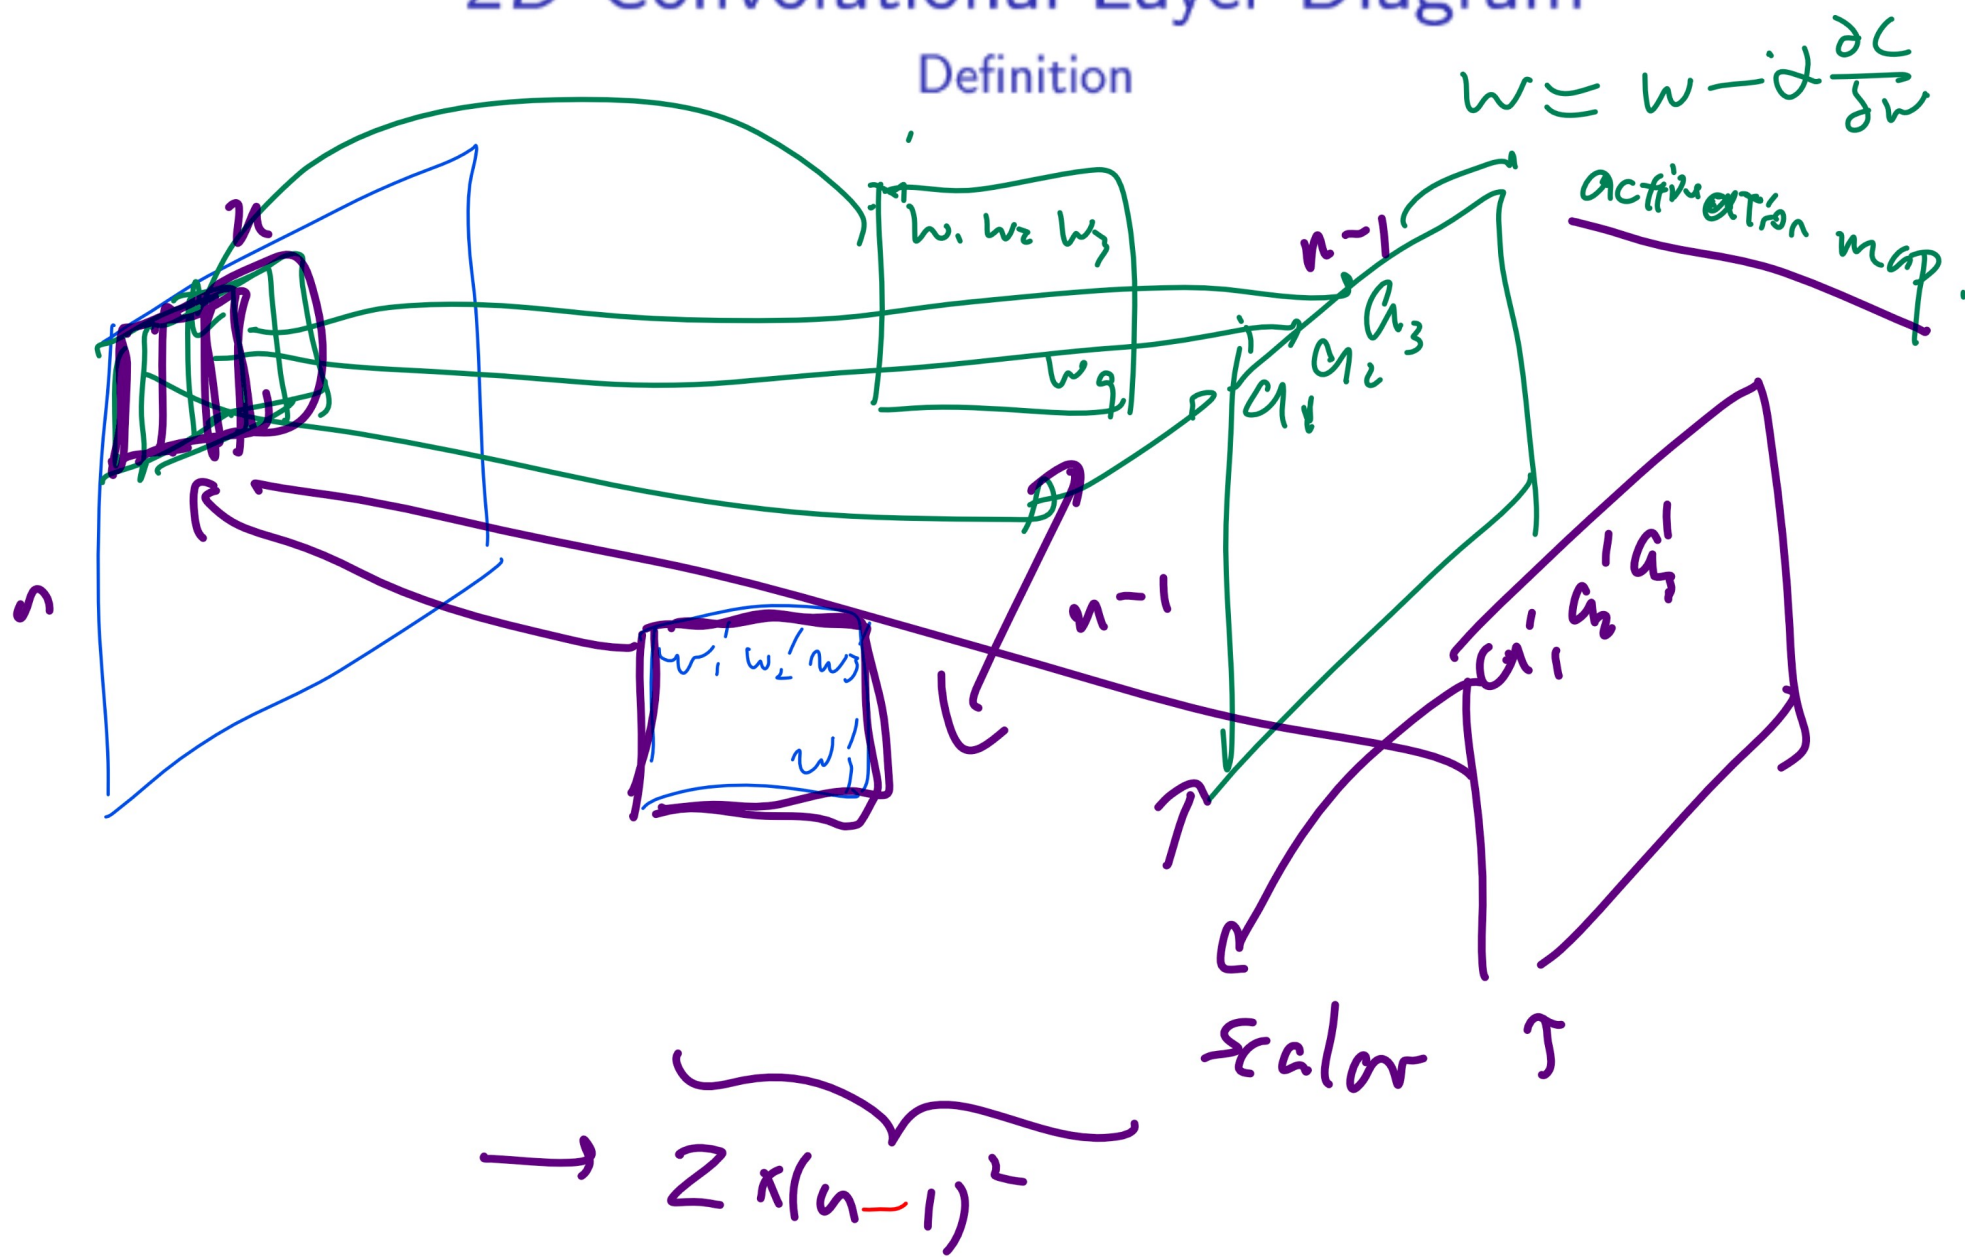 2D Convolutional Layer Diagram
Definition
w = w - α ∂C/∂w
activation map.
n
n-1
w₁ w₂ w₃
w₉
a₁ a₂ a₃
n
n-1
w₁' w₂' w₃'
w'
a₁' a₂' a₃'
scalar
→ 2 × (n-1)²